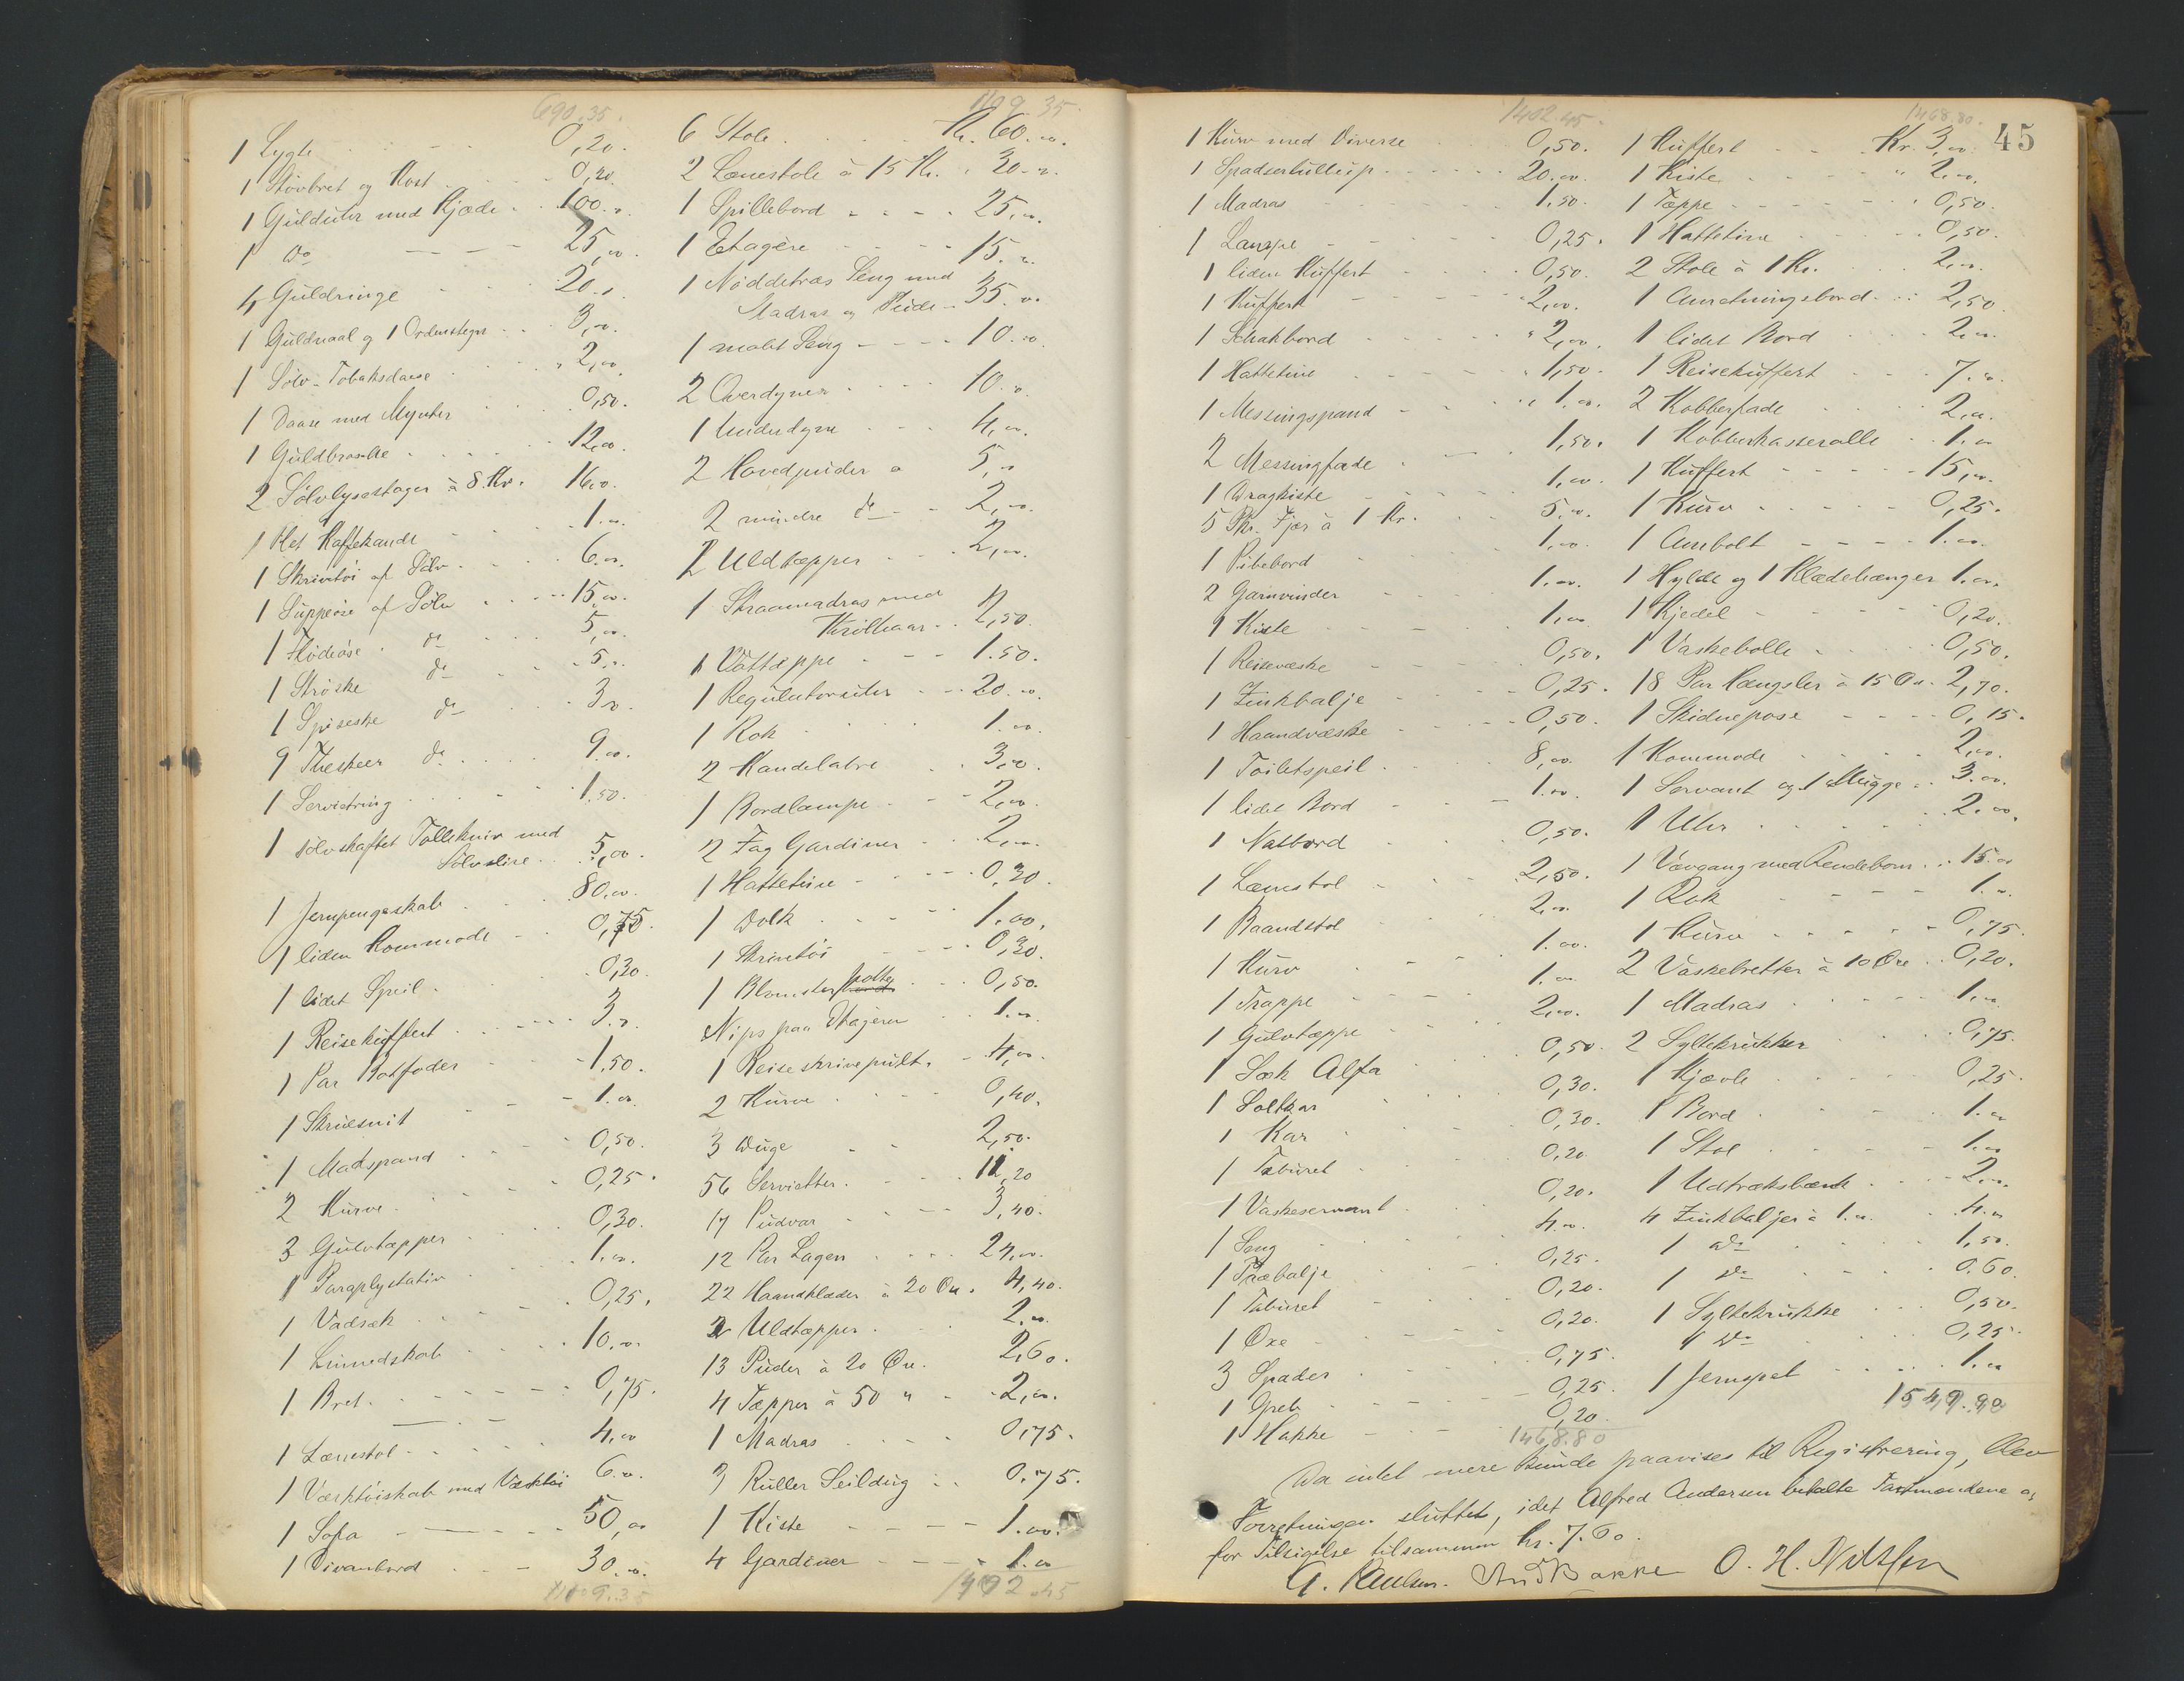 690.35.
1 Lygte 0,20.
1 Støvbret og Kost 0,20.
1 Gulduhr med Kjæde 100.„
1 do 25,00.
4 Guldringe 20.„
1 Guldnaal og 1 Ordenstegn 3,00.
1 Sølv-Tobaksdaase 2,00.
1 Daase med Mynter 0,50.
1 Guldbrosche 12,00.
2 Sølvlysestager à 8 Kr. 16.00.
1 Plet Kaffekande 1.00.
1 Skrivetøi af Sølv 6.00.
1 Suppeøse af Sølv 15.00.
1 Flødeøse do 5,00.
1 Strøske do 5.„.
1 Spiseske do 3.00
9 Theskeer do 9.00.
1 Serviетring 1.50.
1 sølvskaftet Tollekniv med
Sølvslire 5,00.
1 Jernpengeskab 80,00.
1 liden Kommode 0,75.
1 lidet Speil 0,20.
1 Reisekuffert 3.„.
1 Par Botforer 1,50.
1 Skruesnit 1.00.
1 Madspand 0,50.
2 Kurve 0,25.
3 Gulvtæpper 0,30.
1 Paraplystativ 1.00.
1 Vadsæk 0,25.
1 Linnedskab 10.00.
1 Bret 0,75.
1 Lænestol 4.00
1 Værktøiskab med Værktøi 6.00.
1 Sofa 50,00
1 Divanbord 30.00.
1109.35
1109.35.
6 Stole Kr. 60.00.
2 Lænestole à 15 Kr. 30.„.
1 Spillebord 25.00.
1 Etagère 15.„.
1 Nøddetræs Seng med
Madras og Pude 35.00.
1 malet Seng 10.00.
2 Overdyner 10.00.
1 Underdyne 4,00.
2 Hovedpuder 5,„
2 mindre do 2,00.
2 Uldtæpper 2,00.
1 Straamadras med
Krølhaar 2,50.
1 Vattæppe 1.50.
1 Regulatoruhr 20.00.
1 Rok 1.00.
2 Kandelabre 3,00.
1 Bordlampe 2,00.
2 Fag Gardiner 2,00.
1 Hattetine 0,30.
1 Dolk 1.00.
1 Skrivetøi 0,30.
1 Blomsterpotte 0,50.
Nips paa Etageren 1.00.
1 Reiseskrivepult 4,00.
2 Kurve 0,40.
3 Duge 2,50.
56 Servietter 11,20
17 Pudvar 3,40.
12 Par Lagen 24,00.
22 Haandklæder à 20 Øre 4,40.
2 Uldtæpper 2.00.
13 Puder à 20 Øre. 2,60.
4 Tæpper à 50 „ 2,00.
1 Madras 0,75.
3 Ruller Seildug 0.75.
1 Kiste 1.00.
4 Gardiner 1.00
1402.45
1402.45.
1 Kurv med Diverse 0,50.
1 Spadserstullup 20.00.
1 Madras 1.50.
1 Lampe 0,25.
1 liden Kuffert 0,50.
1 Kuffert 2,00.
1 Schakbord 2,00.
1 Hattetine 1,50.
1 Messingspand 1.00.
2 Messingfade 1,50.
1 Dragkiste 1,00.
5 Pkr. Fjær à 1 Kr. 5.00.
1 Pibebord 1,00.
2 Garnvinder 1.00.
1 Kiste 1,00
1 Reisevæske 0,50.
1 Zinkbalje 0,25.
1 Haandvæske 0,50.
1 Toiletspeil 8,00.
1 lidet Bord 1.00.
1 Natbord 0,50.
1 Lænestol 2,50.
1 Baandstol 2,00
1 Kurv 1.00.
1 Trappe 1.00
1 Gulvtæppe 2,00.
1 Sæk Alfa 0,50.
1 Saltkar 0,30.
1 Kar 0,30.
1 Taburet 0,20
1 Vaskeservant 0,20.
1 Seng 4.00.
1 Træbalje 0,25.
1 Taburet 0,20.
1 Øxe 0,20.
3 Spader 0,75.
1 Greb 0,25.
1 Hakke 0,20.
1468.80
1468,80.
45
1 Kuffert Kr. 3,00.
1 Kiste 2,00.
1 Tæppe 0,50.
1 Hattetine 0,50.
2 Stole à 1 Kr. 2,00.
1 Anretningsbord 2,50
1 lidet Bord 2.00.
1 Reisekuffert 7.00.
2 Kobberfade 2,00.
1 Kobberkasserolle 1.00
1 Kuffert 15,00.
1 Kurv 0,25.
1 Ambolt 1.00.
1 Hylde og 1 Klædehænger 1.00.
1 Kjedel 0,20.
1 Vaskebolle 0,50.
18 Par Hængsler à 15 Øre 2,70.
1 Skiduepose 0,15.
1 Kommode 2,00.
1 Servant og 1 Mugge 3.00.
1 Uhr 2.00.
1 Vævgang med Rendebom 15.00
1 Rok 1.00.
1 Kurv 0,75.
2 Vaskebretter à 10 Øre 0,20.
1 Madras 1.00
2 Syltekrukker 0,75.
1 Kjævle 0,25.
1 Bord 1.00
1 Stol 1.00
1 Udtræksbænk 2.00.
4 Zinkbaljer à 1.00. 4.00
1 do 1,50.
1 do 0.60.
1 Syltekrukke 0,50.
4 do 0,25.
1 Jernspet 1.00
1549.90
Da intet mere kunde paavises til Registrering, blev
Forretningen sluttet, idet Alfred Andersen betalte Taxtmændene og
for Tilsigelse tilsammen Kr. 7.60.
G. Paulsen. And Bakke O. H. Nilssen